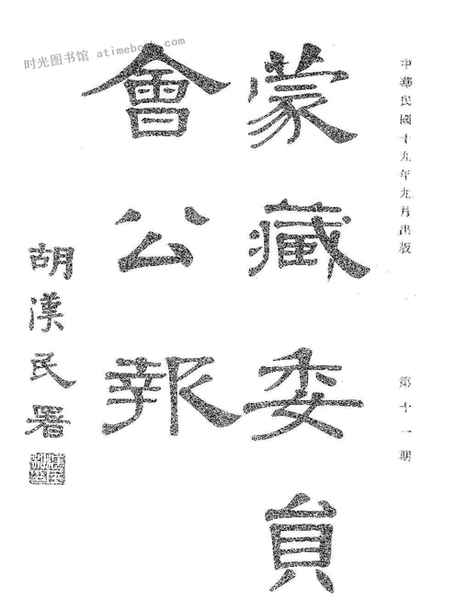 中華民國十九年九月出版 第十一期
蒙藏委員
會公報
胡漢民署
时光图书馆 atimebook.com